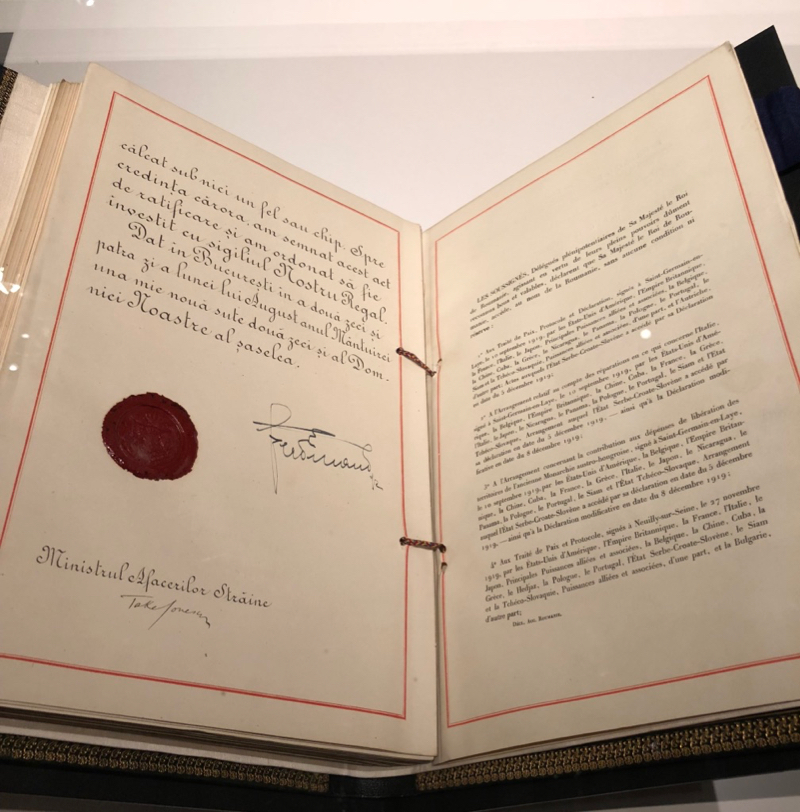 călcat sub nici un fel sau chip. Spre
credința cărora, am semnat acest act
de ratificare și am ordonat să fie
investit cu sigiliul Nostru Regal.
Dat în București în a două zeci și
patra zi a lunei lui August anul Mântuirei
una mie nouă sute două zeci și al Dom.
niei Noastre al șaselea.
Ferdinand
Ministrul Afacerilor Străine
Take Ionescu
LES SOUSSIGNÉS, Délégués plénipotentiaires de Sa Majesté le Roi
de Roumanie, agissant en vertu de leurs pleins pouvoirs dûment
reconnus bons et valables, déclarent que Sa Majesté le Roi de Rou-
manie accède, au nom de la Roumanie, sans aucune condition ni
réserve :
1° Aux Traité de Paix, Protocole et Déclaration, signés à Saint-Germain-en-
Laye, le 10 septembre 1919, par les États-Unis d'Amérique, l'Empire Britannique,
la France, l'Italie, le Japon, Principales Puissances alliées et associées, la Belgique,
la Chine, Cuba, la Grèce, le Nicaragua, le Panama, la Pologne, le Portugal, le
Siam et la Tchéco-Slovaquie, Puissances alliées et associées, d'une part, et l'Autriche,
d'autre part, Actes auxquels l'État Serbe-Croate-Slovène a accédé par sa Déclaration
en date du 5 décembre 1919;
2° A l'Arrangement relatif au compte des réparations en ce qui concerne l'Italie,
signé à Saint-Germain-en-Laye, le 10 septembre 1919, par les États-Unis d'Amé-
rique, la Belgique, l'Empire Britannique, la Chine, Cuba, la France, la Grèce,
l'Italie, le Japon, le Nicaragua, le Panama, la Pologne, le Portugal, le Siam et l'État
Tchéco-Slovaque, Arrangement auquel l'État Serbe-Croate-Slovène a accédé par
sa déclaration en date du 5 décembre 1919, — ainsi qu'à la Déclaration modi-
ficative en date du 8 décembre 1919;
3° A l'Arrangement concernant la contribution aux dépenses de libération des
territoires de l'ancienne Monarchie austro-hongroise, signé à Saint-Germain-en-Laye,
le 10 septembre 1919, par les États-Unis d'Amérique, la Belgique, l'Empire Britan-
nique, la Chine, Cuba, la France, la Grèce, l'Italie, le Japon, le Nicaragua, le
Panama, la Pologne, le Portugal, le Siam et l'État Tchéco-Slovaque, Arrangement
auquel l'État Serbe-Croate-Slovène a accédé par sa déclaration en date du 5 décembre
1919, — ainsi qu'à la Déclaration modificative en date du 8 décembre 1919;
4° Aux Traité de Paix et Protocole, signés à Neuilly-sur-Seine, le 27 novembre
1919, par les États-Unis d'Amérique, l'Empire Britannique, la France, l'Italie, le
Japon, Principales Puissances alliées et associées, la Belgique, la Chine, Cuba, la
Grèce, le Hedjaz, la Pologne, le Portugal, l'État Serbe-Croate-Slovène, le Siam
et la Tchéco-Slovaquie, Puissances alliées et associées, d'une part, et la Bulgarie,
d'autre part;